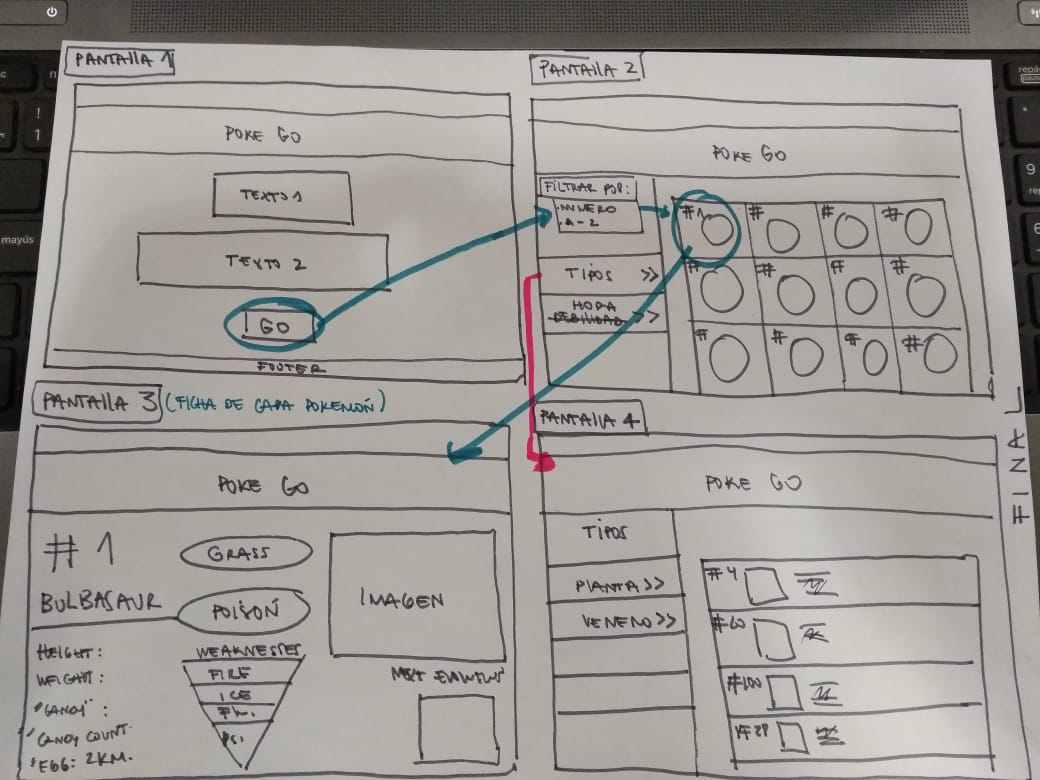 PANTALLA 1
POKE GO
TEXTO 1
TEXTO 2
GO
FOOTER
PANTALLA 2
POKE GO
FILTRAR POR:
.NUMERO
.A-Z
TIPOS >>
HORA
DEBILIDAD >>
#1 # # #
# # # #
# # # #
PANTALLA 3 (FICHA DE CADA POKEMÓN)
POKE GO
# 1
BULBASAUR
GRASS
POISON
IMAGEN
HEIGHT:
WEIGHT:
"CANDY":
"CANDY COUNT
"EGG: 2KM.
WEAKNESSES
FIRE
ICE
PSI.
NEXT
PANTALLA 4
POKE GO
TIPOS
PLANTA >>
VENENO >>
#4
#60
#100
#28
FINAL
mayús